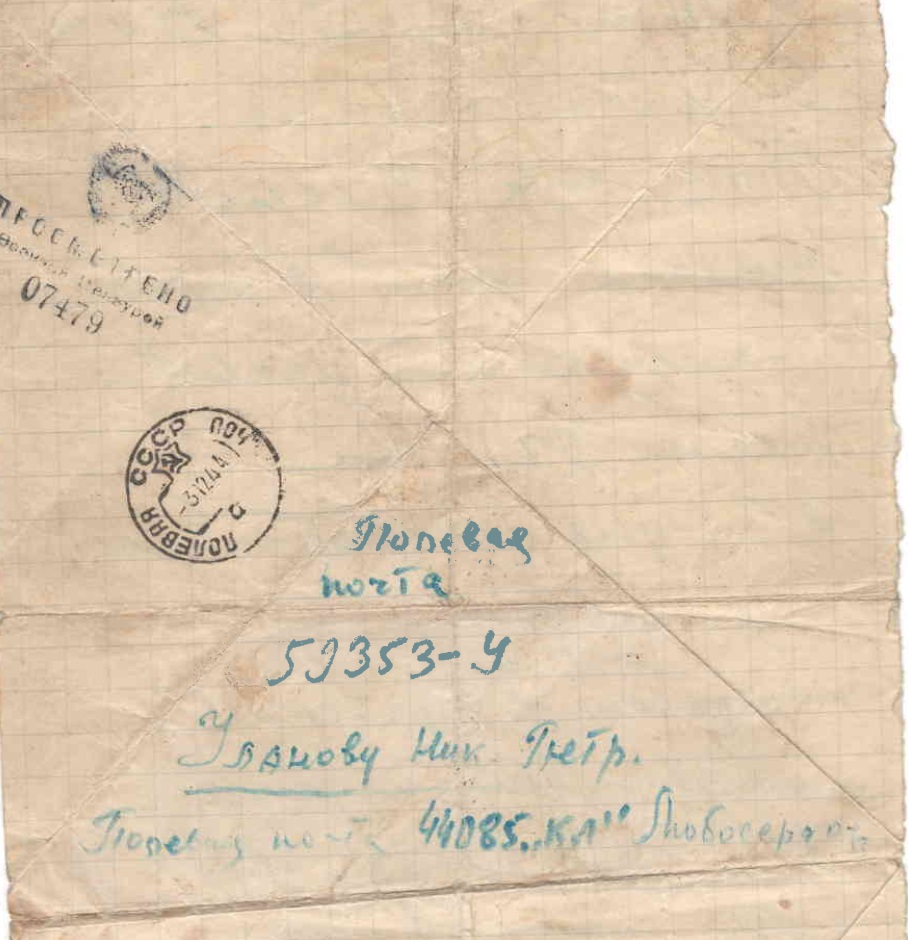 ПРОСМОТРЕНО
Военной Цензурой
07479
СССР
ПОЛЕВАЯ ПОЧТ
-31244
а
Полевая
почта
59353-У
Уланову Ник. Петр.
Полевая почта 44085 „КЛ"